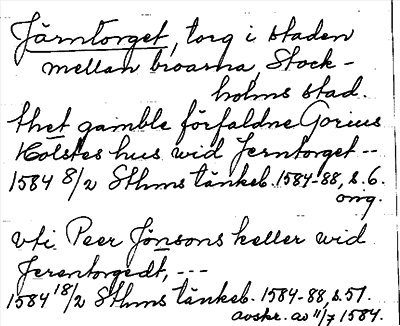 Järntorget, torg i staden
mellan broarna, Stock-
holms stad.
thet gamble förfaldne Gorius
Holstes hus wid Jerntorget --
1584 8/2 Sthms tänkeb. 1584-88, s. 6.
orig.
vti Peer Jönsons keller wid
Jerentorgedt, ---
1584 18/2 Sthms tänkeb. 1584-88, s. 51.
avskr. av 11/7 1584.